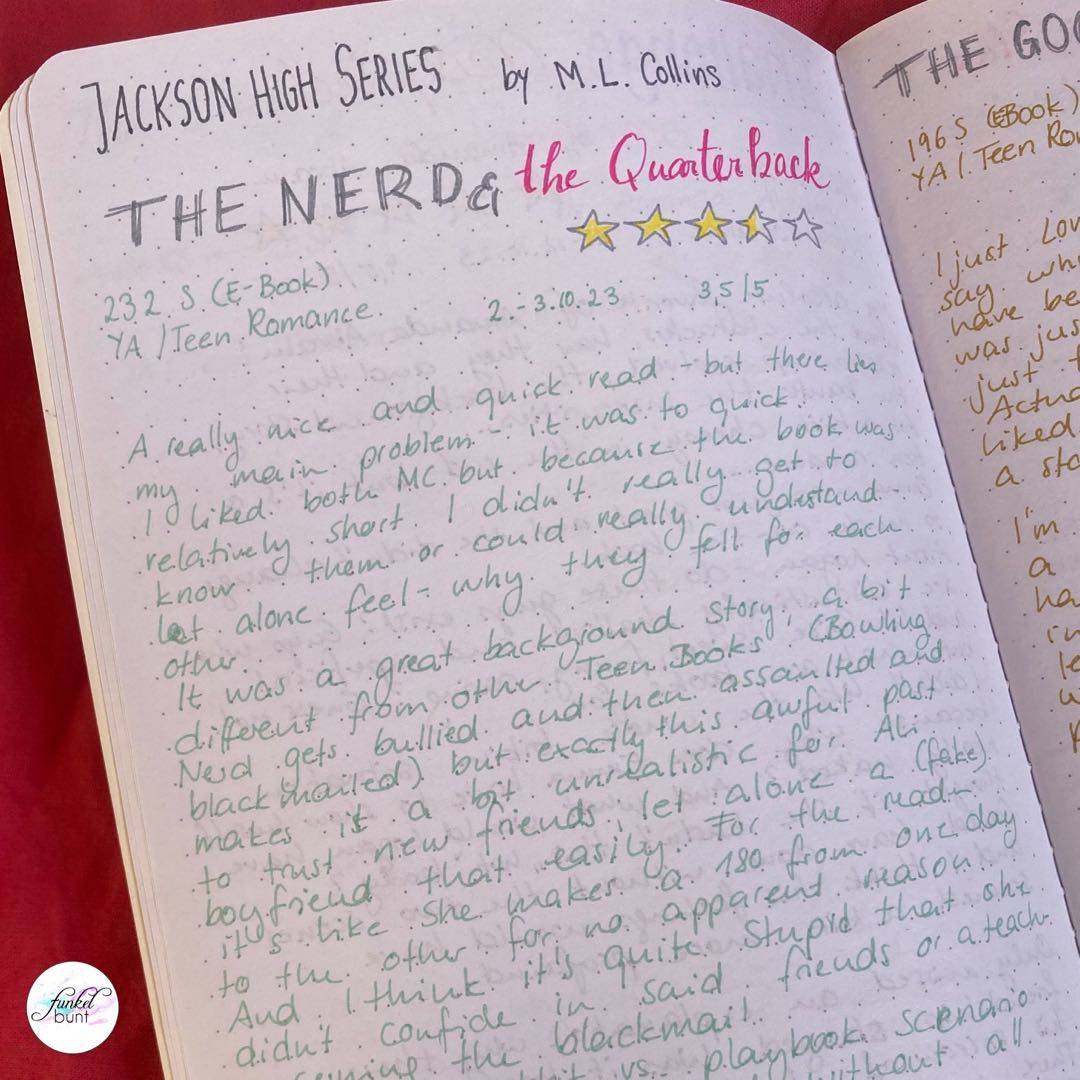 JACKSON HIGH SERIES by M. L. Collins
THE NERD & the Quarterback
232 S (E-Book)
YA / Teen Romance 2.-3.10.23 3,5/5
A really nice and quick read - but there lies
my main problem - it was to quick.
I liked both MC but because the book was
relatively short I didn't really get to
know them or could really understand -
let alone feel - why they fell for each
other.
It was a great background story, a bit
different from other Teen Books (Bowling
Nerd gets bullied and then assaulted and
blackmailed) but exactly this awful past
makes it a bit unrealistic for Ali
to trust new friends, let alone a (fake)
boyfriend that easily. For the read
it's like she makes a 180 from one day
to the other for no apparent reason.
And I think it's quite stupid that she
didn't confide in said friends or a teach
the blackmail.
vs. playbook scenario
without all
THE GOO
196 S (EBook)
YA / Teen Ro
I just Lov
say wh
have be
was jus
just
Actua
liked
a sto
I'm
a
ha
in
le
w
funkel
bunt